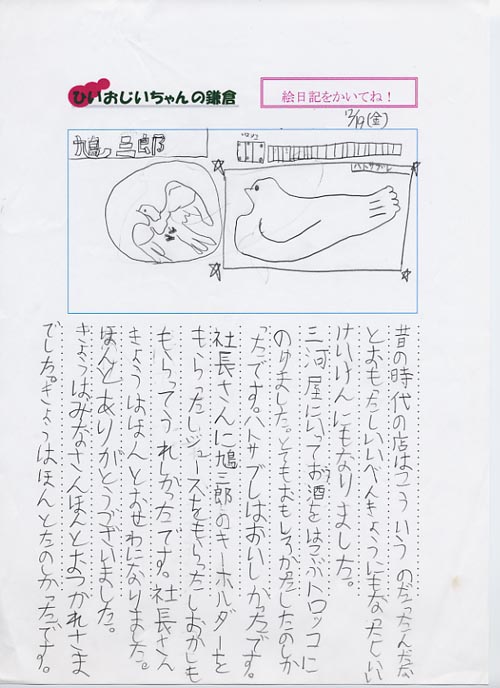 ひいおじいちゃんの鎌倉
絵日記をかいてね!
12/19(金)
鳩三郎
ハトサブレ
昔の時代の店はこういうのだったんだな
とおもったしいいべんきょうにもなったしいい
けいけんにもなりました。
三河屋にいってお酒をはこぶトロッコに
のりました。とてもおもしろかたしたのしか
ったです。ハトサブレはおいしかったです。
社長さんに鳩三郎のキーホルダーを
もらったしジュースをもらったしおかしも
もらってうれしかったです。社長さん
きょうはほんとおせわになりました。
ほんとありがとうございました。
きょうはみなさんほんとおつかれさま
でした。きょうはほんとたのしかったです。